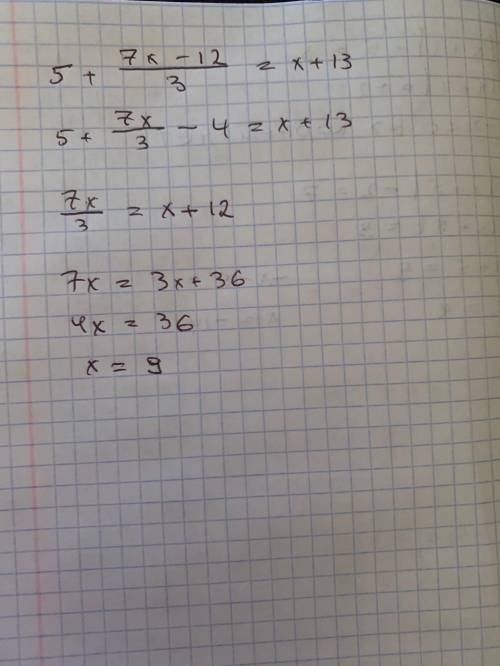 5 + (7x - 12)/3 = x + 13
5 + 7x/3 - 4 = x + 13
7x/3 = x + 12
7x = 3x + 36
4x = 36
x = 9